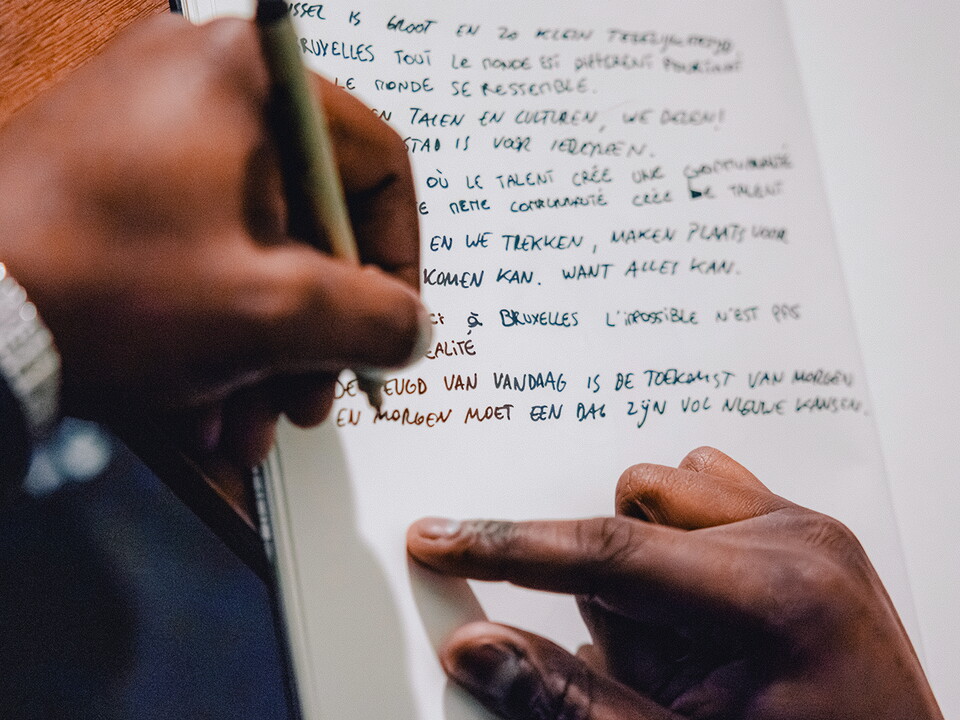 IS GROOT EN ZO KLEIN TEGELIJKERTIJD
BRUXELLES TOUT LE MONDE EST DIFFÉRENT POURTANT
LE MONDE SE RESSEMBLE.
TALEN EN CULTUREN, WE DELEN!
STAD IS VOOR IEDEREEN.
OÙ LE TALENT CRÉE UNE COMMUNAUTÉ
MEME COMMUNAUTÉ CRÉE LE TALENT
EN WE TREKKEN, MAKEN PLAATS VOOR
KOMEN KAN. WANT ALLES KAN.
à BRUXELLES L'IMPOSSIBLE N'EST PAS
EALITÉ
DE EUGD VAN VANDAAG IS DE TOEKOMST VAN MORGEN
EN MORGEN MOET EEN DAG ZIJN VOL NIEUWE KANSEN.